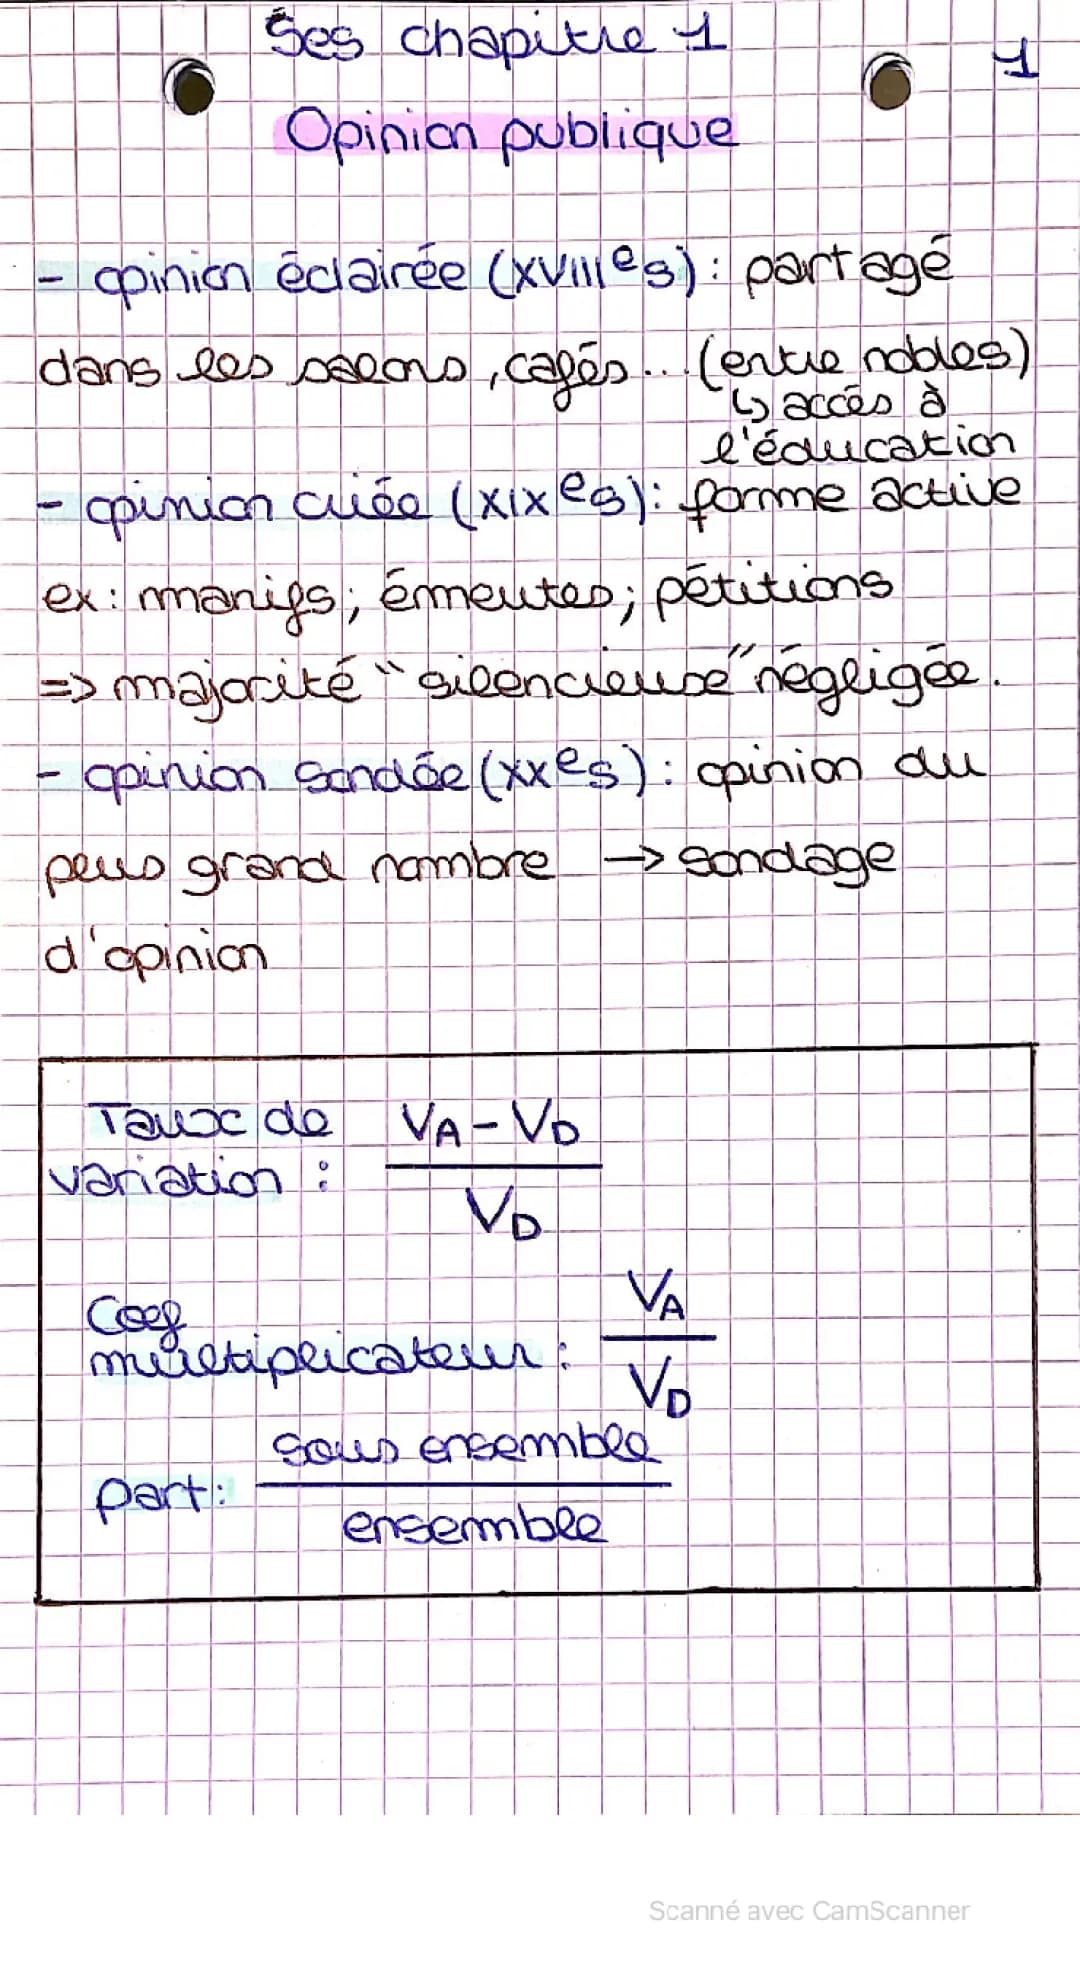 Ses chapitre 1
1
Opinion publique
- opinion éclairée (XVIIIe s) : partagé
dans les salons, cafés... (entre nobles)
↳ accès à
l'éducation
- opinion criée (XIXe s) : forme active
ex : manifs ; émeutes ; pétitions
=> majorité "silencieuse" négligée.
- opinion sondée (XXe s) : opinion du
plus grand nombre → sondage
d'opinion
Taux de VA - VD
variation : VD
Coef VA
multiplicateur : VD
sous ensemble
part :
ensemble
Scanné avec CamScanner